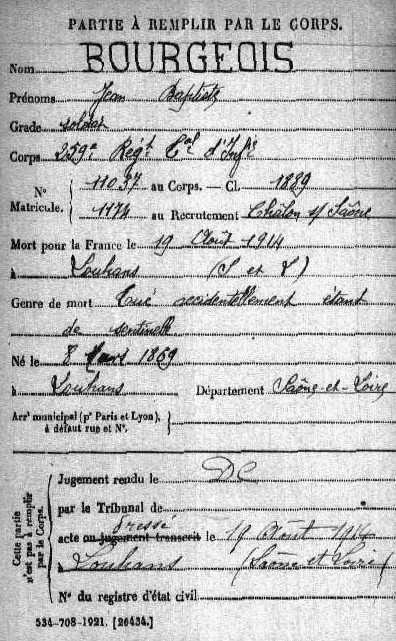 PARTIE À REMPLIR PAR LE CORPS.
Nom BOURGEOIS
Prénoms Jean Baptiste
Grade soldat
Corps 259e Régt Cal d'Infie
N° Matricule. 11037 au Corps. — Cl. 1889
1174 au Recrutement Châlon s/ Saône
Mort pour la France le 19 Août 1914
à Louhans (S et L)
Genre de mort Tué accidentellement étant
de sentinelle
Né le 8 Mars 1869
à Louhans Département Saône-et-Loire
Arrt municipal (pr Paris et Lyon), à défaut rue et N°.
Cette partie n'est pas à remplir par le Corps.
Jugement rendu le DC
par le Tribunal de
dressé
acte ou jugement transcrit le 19 Août 1914
à Louhans (Saône et Loire)
N° du registre d'état civil
534-708-1921. [26434.]